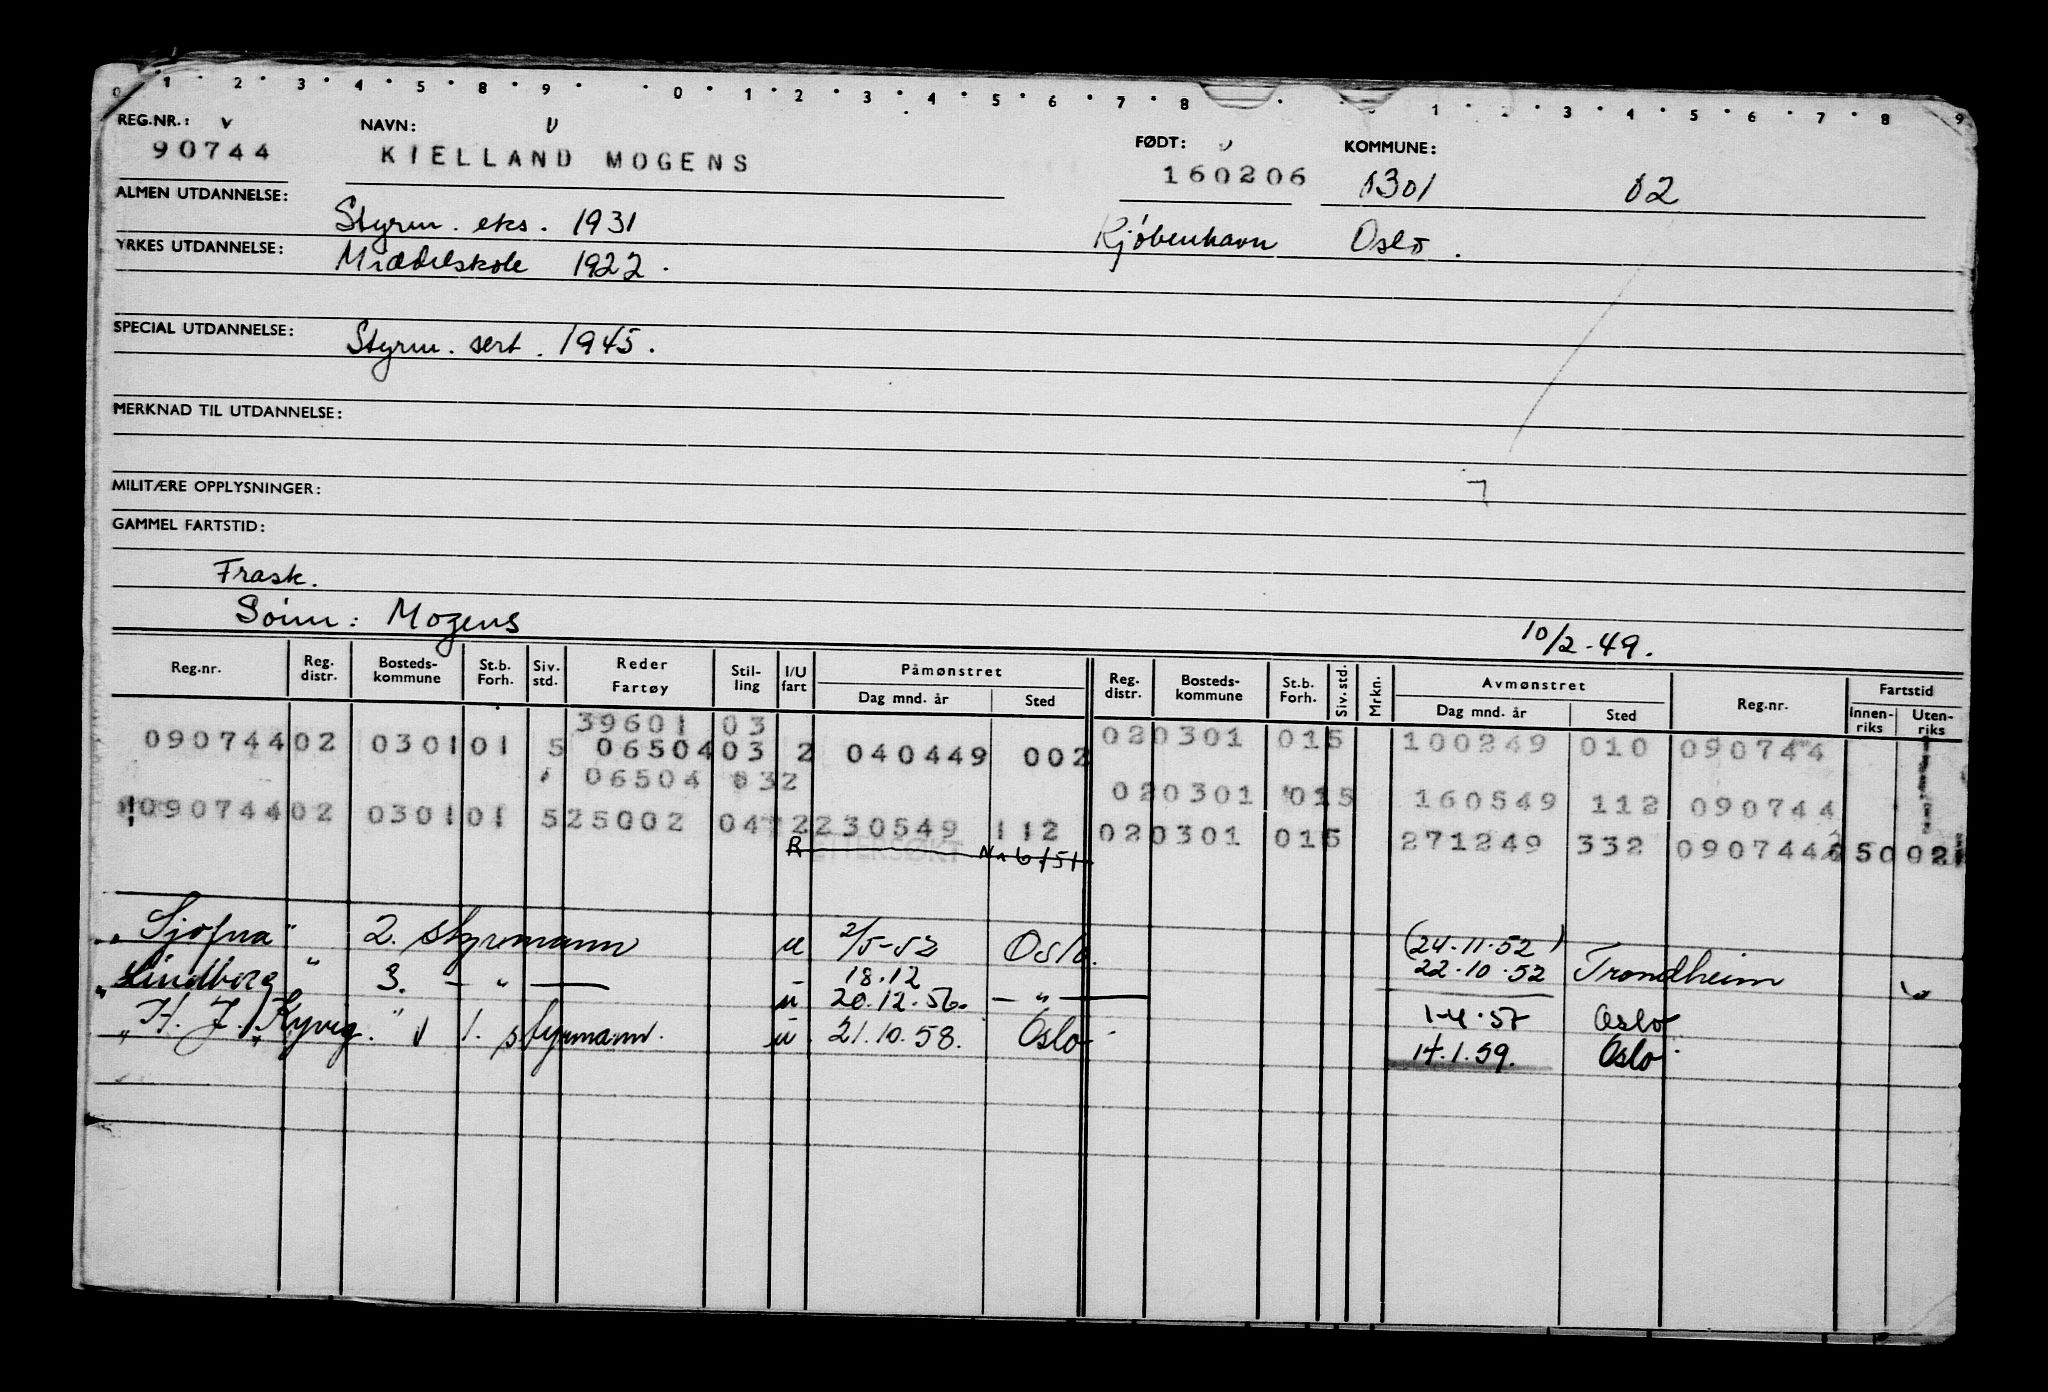 0 1 2 3 4 5 8 9 0 1 2 3 4 5 6 7 8 1 2 3 4 5 6 7 8 9
REG.NR.: v NAVN: v FØDT: v KOMMUNE:
90744 KIELLAND MOGENS 160206 0301 02
ALMEN UTDANNELSE: Styrm. eks. 1931 Kjøbenhavn Oslo.
YRKES UTDANNELSE: Middelskole 1922.
SPECIAL UTDANNELSE: Styrm. sert. 1945.
MERKNAD TIL UTDANNELSE:
MILITÆRE OPPLYSNINGER:
GAMMEL FARTSTID:
Frask.
Sønn: Mogens 10/2-49.
Reg.nr. Reg. distr. Bosteds-kommune St.b. Forh. Siv. std. Reder Fartøy Stil-ling I/U fart Påmønstret Dag mnd. år Sted Reg. distr. Bosteds-kommune St.b. Forh. Siv. std. Mrkn. Avmønstret Dag mnd. år Sted Reg.nr. Fartstid Innen-riks Uten-riks
39601 03 020301 015 100249 010 090744
090744 02 0301 01 5 06504 03 2 040449 002
06504 032 020301 015 160549 112 090744
090744 02 0301 01 5 25002 047 2 230549 112 020301 015 271249 332 090744 50 02
R ETTERSØKT Nr 6/51
"Sjofna" 2. styrmann u 2/5-52 Oslo. (24.11.52)
22.10.52 Trondheim
"Lindberg" 3. - " - u 18.12
20.12.56. - " - 1-4-57 Oslo
"H. J. Kyvig." v 1. styrmann. u 21.10.58. Oslo 14.1.59. Oslo.